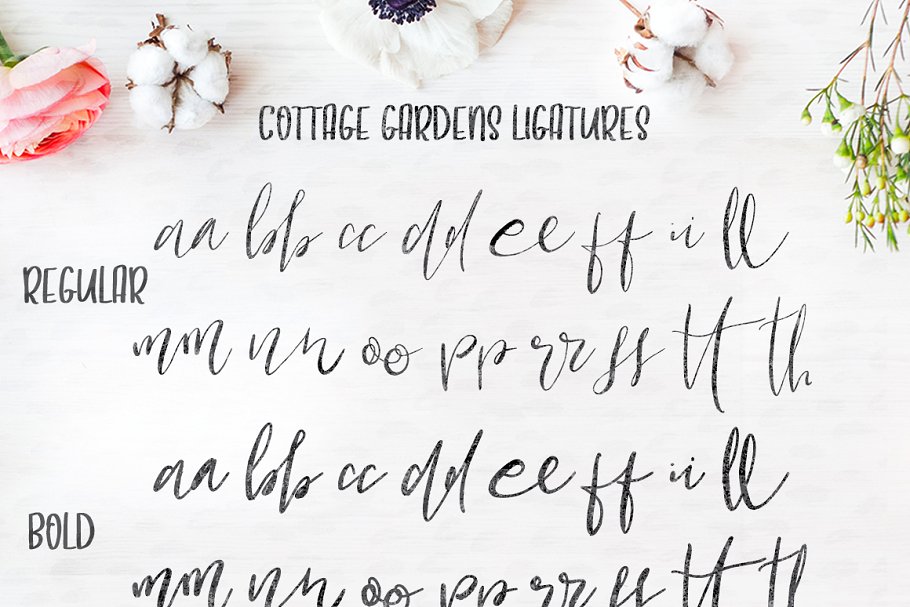 COTTAGE GARDENS LIGATURES
aa bb cc dd ee ff ii ll
REGULAR
mm nn oo pp rr ss tt th
aa bb cc dd ee ff ii ll
BOLD
mm nn oo pp rr ss tt th